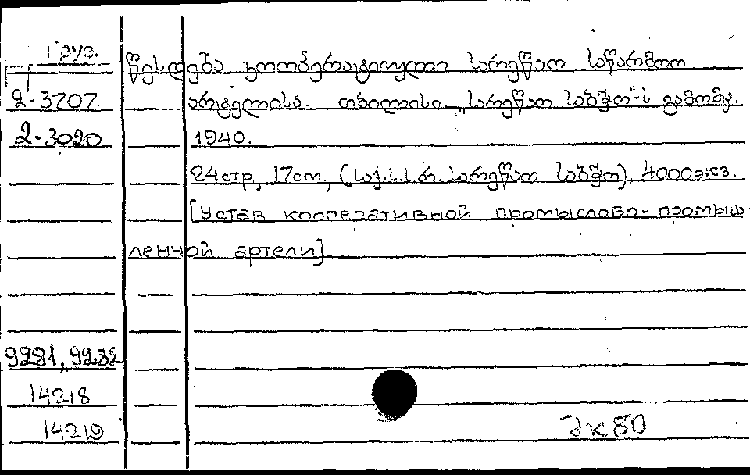 Груз.
წესდება კოოპერატიული სარეწაო საწარმოო
2-3707 არტელისა. თბილისი, "სარეწაო საბჭო"-ს გამოც.
2-3020 1940.
24стр, 17см, (საქ.ს.ს.რ. სარეწაო საბჭო), 4000экз.
[Устав кооперативной промыслово-промыш
ленной артели]
9291, 9232
14218
14219